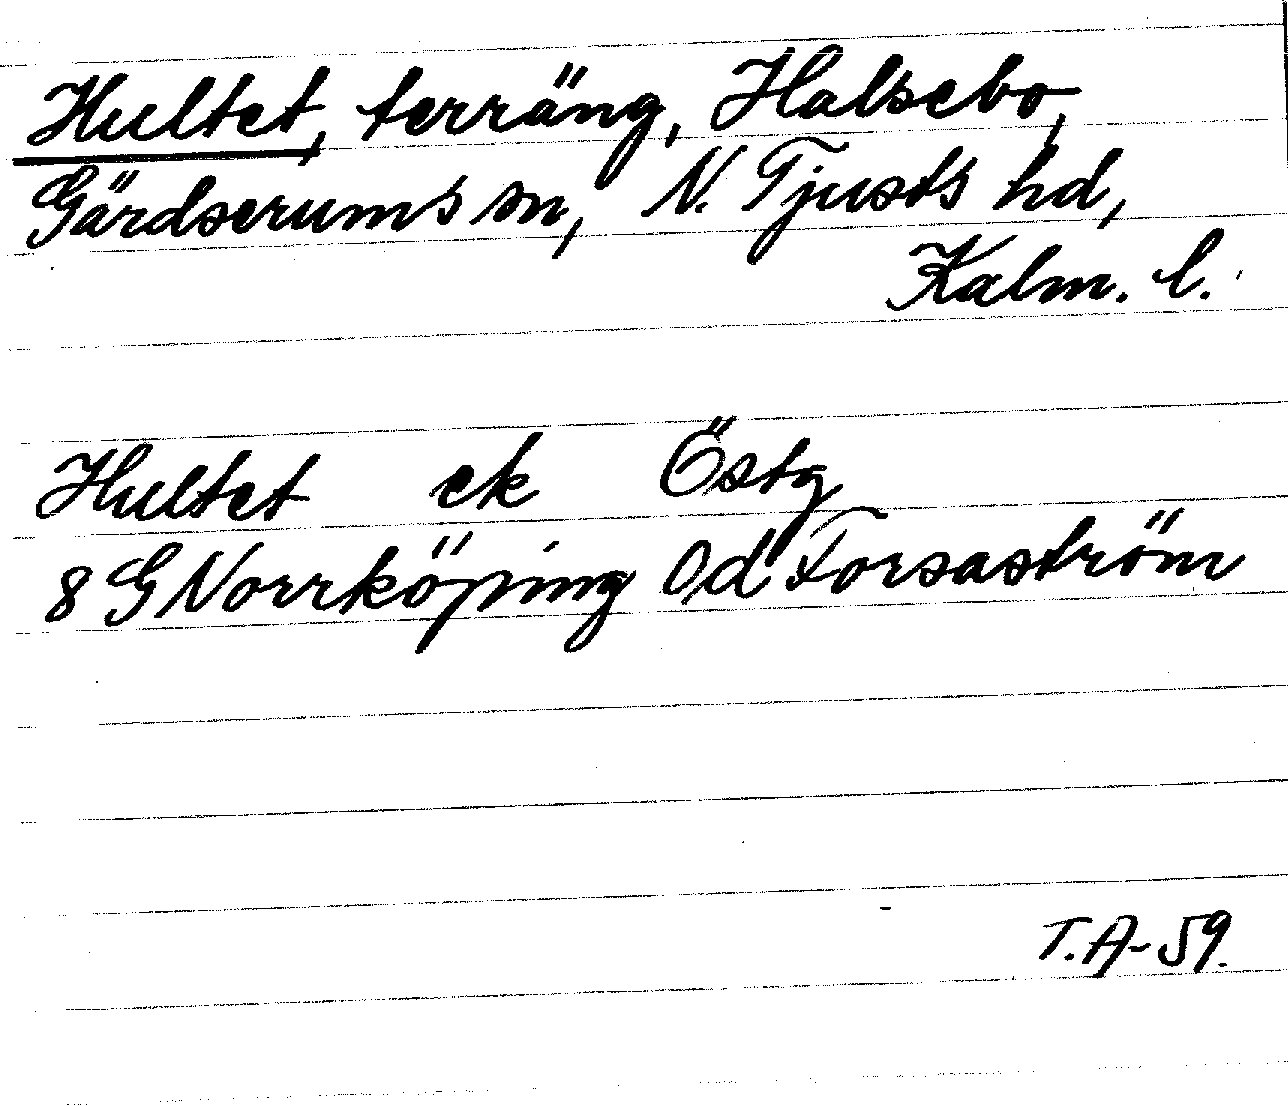 Hultet, terräng, Halsebo,
Gärdserums sn, N. Tjusts hd,
Kalm. l.
Hultet ek Östg
8 G Norrköping 0d Forsaström
T.A-59.